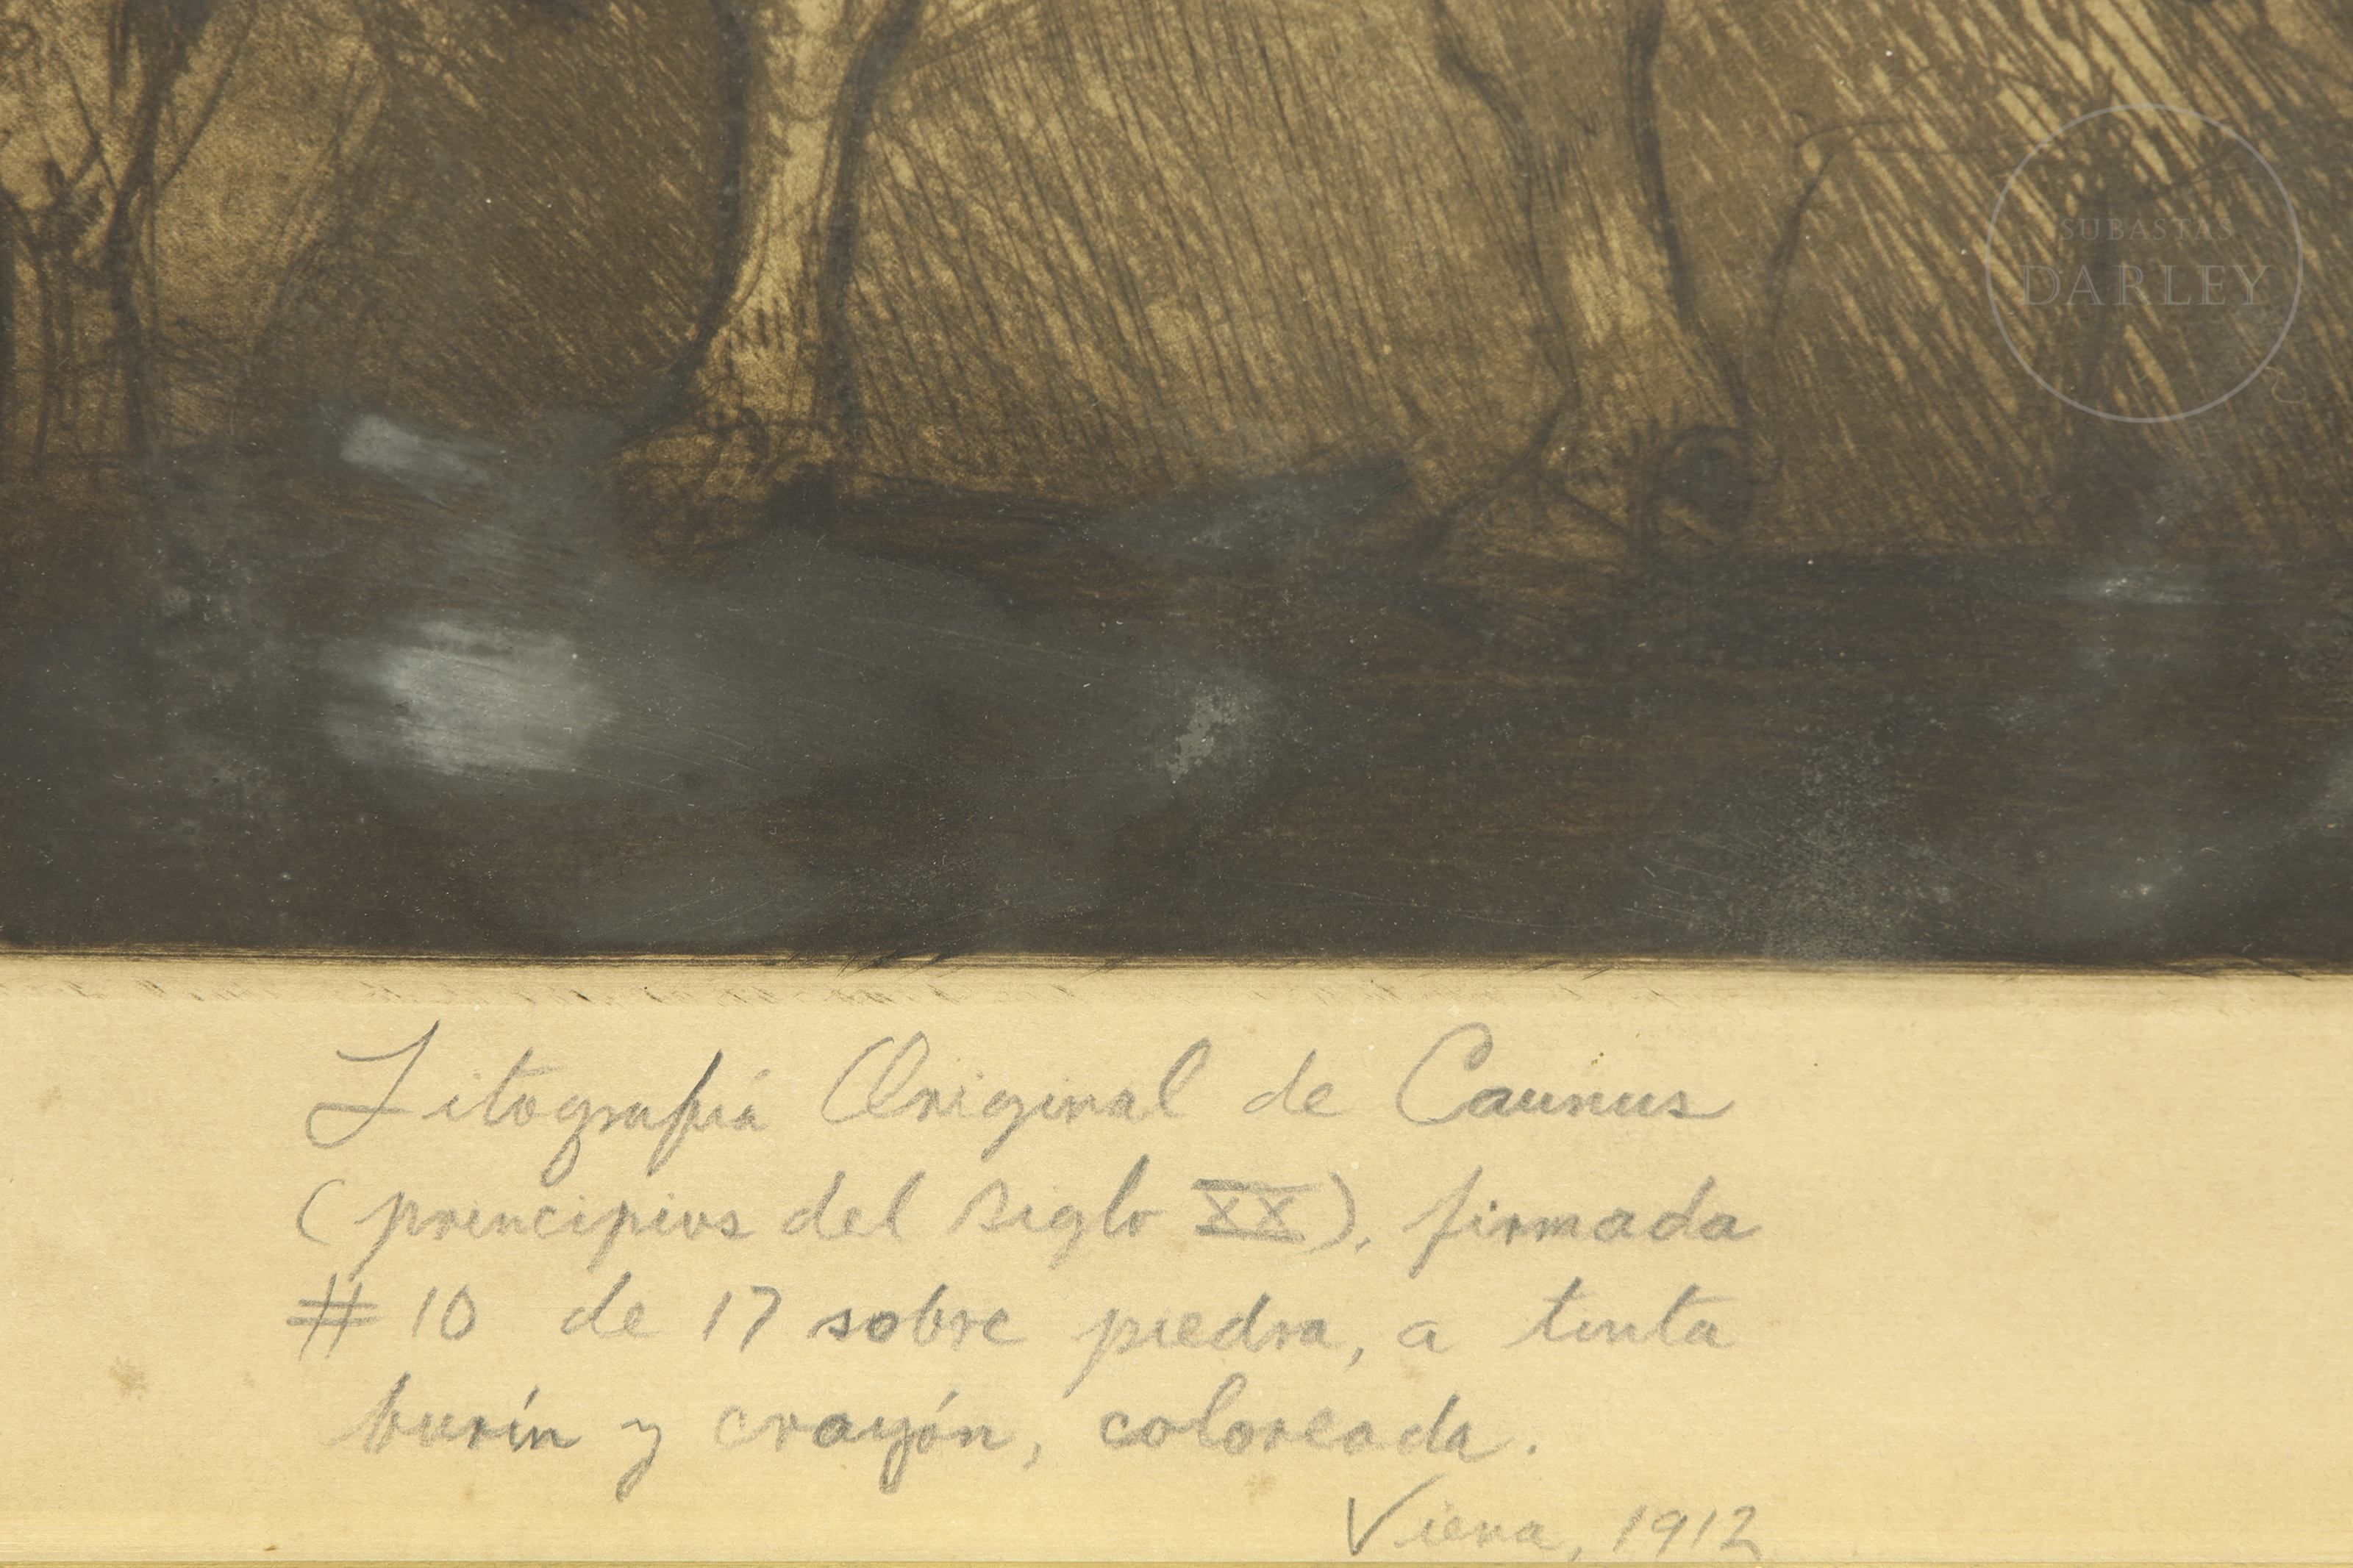 SUBASTAS
DARLEY
Litografiá Original de Caunus
(principios del siglo XX), firmada
# 10 de 17 sobre piedra, a tinta
burín y crayón, coloreada.
Viena, 1912